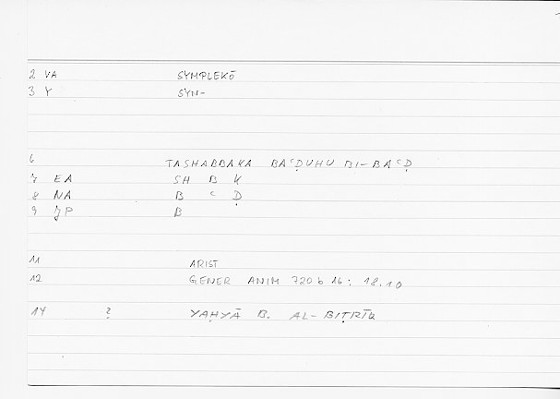 2 VA SYMPLEKĒ
3 Y SYN-
6 TASHABBAKA BAʿḌUHU BI-BAʿḌ
7 EA SH B K
8 NA B ʿ Ḍ
9 JP B
11 ARIST
12 GENER ANIM 720 b 16; 18.10
14 ? YAḤYĀ B. AL-BIṬRĪQ